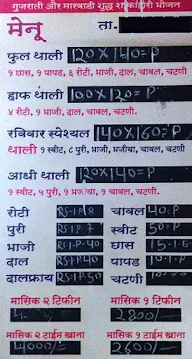 गुजराती और मारवाडी शुद्ध शाकाहारी भोजन
मेनू ता.
फुल थाली 120×140=P
१ छास, १ पापड, ६ रोटी, भाजी, दाल, चावल, चटणी
हाफ थाली 100×120=P
४ रोटी, १ भाजी, दाल, चावल, चटणी.
रविबार स्पेश्यल 140×160=P
थाली १ स्वीट, ८ पुरी, भाजी, भजीया, चावल, चटणी
आधी थाली 120×140=P
१ स्वीट, ५ पुरी, १ भजीया, १ चावल, चटणी.
रोटी RS-1-P-8 चावल 40-P
पुरी RS-1-P-7 स्वीट 50-P
भाजी RS-1-P-40 छास 15-1-G
दाल RS-1-P-40 पापड 10-1-P
दालफ्राय RS-1-P-50 चटणी
मासिक २ टिफीन मासिक १ टिफीन
2800/-
मासिक २ टाईम खाना मासिक १ टाईम खाना
4000/- 2600/-